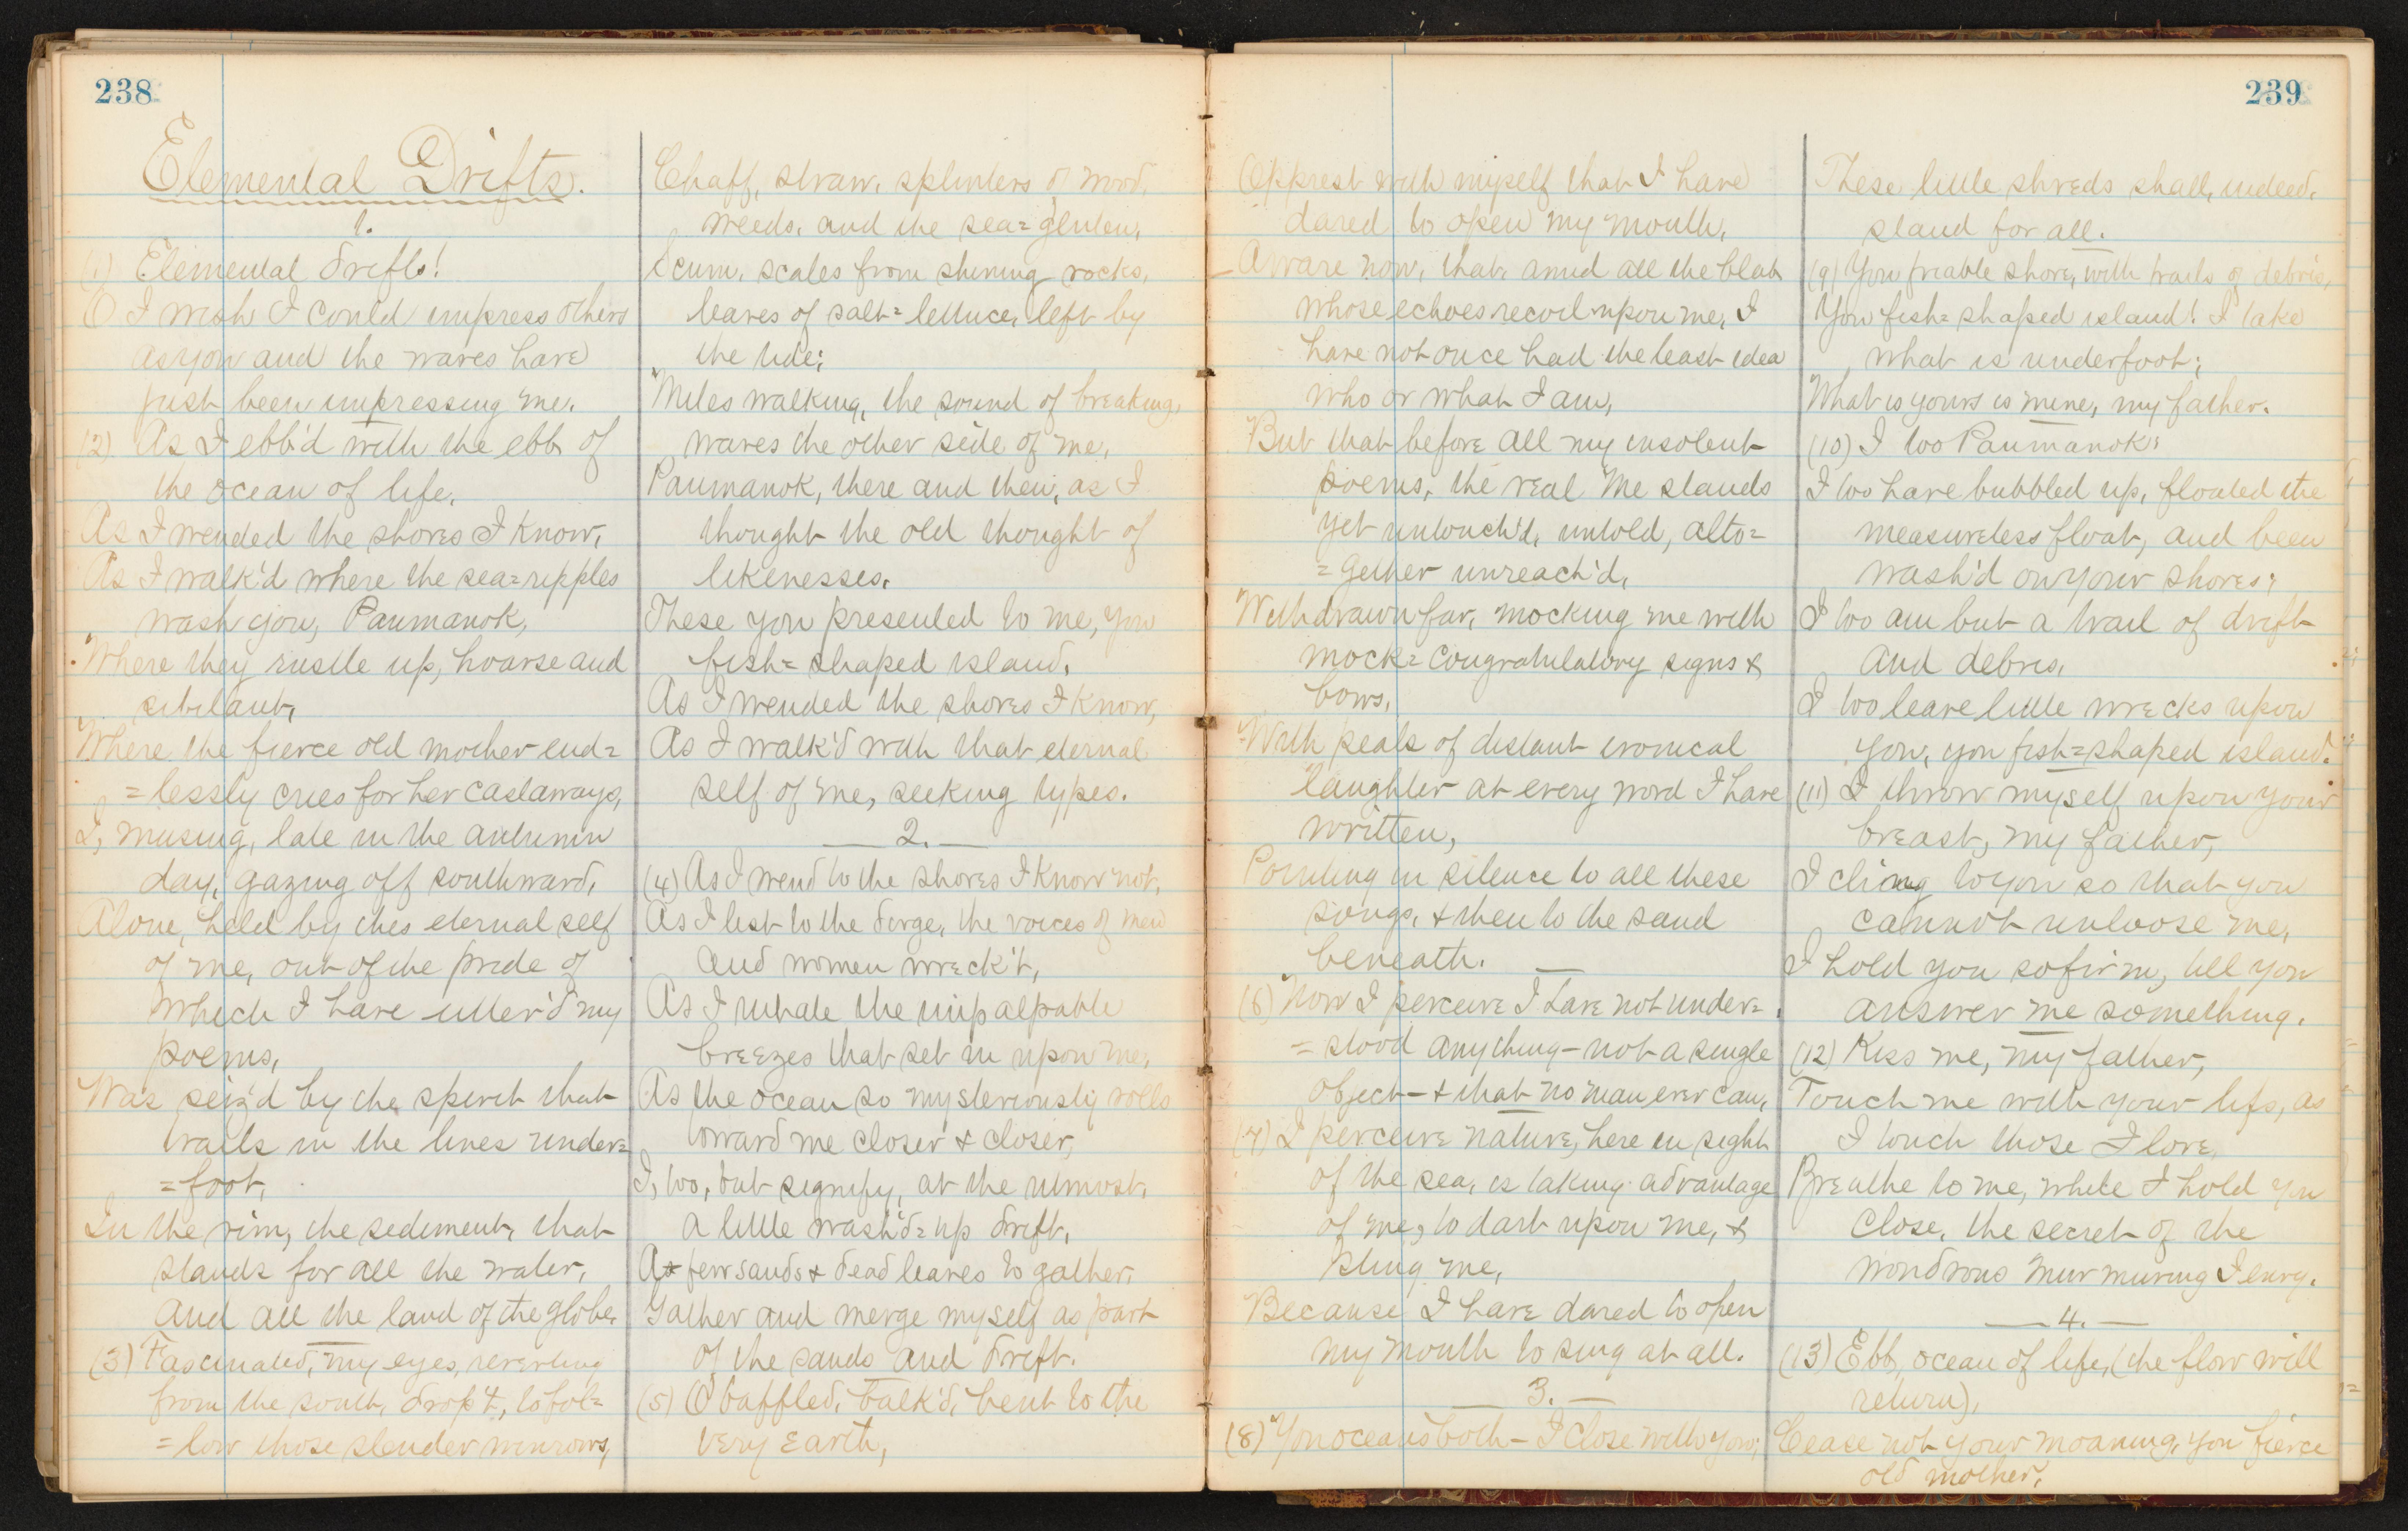 238
Elemental Drifts.
1.
(1) Elemental drifts!
O I wish I could impress others
as you and the waves have
just been impressing me.
(2) As I ebb'd with the ebb of
the ocean of life,
As I wended the shores I know,
As I walk'd where the sea=ripples
wash you, Paumanok,
Where they rustle up, hoarse and
sibilant,
Where the fierce old mother end=
=lessly cries for her castaways,
I, musing, late in the autumn
day, gazing off southward,
Alone, held by this eternal self
of me, out of the pride of
which I have utter'd my
poems,
Was seiz'd by the spirit that
trails in the lines under=
=foot,
In the rim, the sediment, that
stands for all the water,
and all the land of the globe.
(3) Fascinated, my eyes, reverting
from the south, dropt, to fol=
=low those slender winrows,
Chaff, straw, splinters of wood,
weeds, and the sea=gluten,
Scum, scales from shining rocks,
leaves of salt=lettuce, left by
the tide;
Miles walking, the sound of breaking
waves the other side of me,
Paumanok, there and then, as I
thought the old thought of
likenesses,
These you presented to me, you
fish=shaped island,
As I wended the shores I know,
As I walk'd with that eternal
self of me, seeking types.
2.
(4) As I wend to the shores I know not,
As I list to the dirge, the voices of men
and women wreck't,
As I inhale the impalpable
breezes that set in upon me,
As the ocean so mysteriously rolls
toward me closer & closer,
I, too, but signify, at the utmost,
a little wash'd=up drift,
A few sands & dead leaves to gather,
Gather and merge myself as part
of the sands and drift.
(5) O baffled, balk'd, bent to the
very earth,
239
Opprest with myself that I have
dared to open my mouth,
Aware now, that, amid all the blab
whose echoes recoil upon me, I
have not once had the least idea
who or what I am,
But that before all my insolent
poems, the real Me stands
yet untouch'd, untold, alto=
=gether unreach'd,
Withdrawn far, mocking me with
mock=congratulatory signs &
bows,
With peals of distant ironical
laughter at every word I have
written,
Pointing in silence to all these
songs, & then to the sand
beneath.
(6) Now I perceive I have not under=
=stood anything - not a single
object - & that no man ever can,
(7) I perceive nature, here in sight
of the sea, is taking advantage
of me, to dart upon me, &
sting me,
Because I have dared to open
my mouth to sing at all.
3.
(8) You oceans both - I close with you;
These little shreds shall, indeed,
stand for all.
(9) You friable shore, with trails of debris,
You fish=shaped island! I take
what is underfoot;
What is yours is mine, my father.
(10) I too Paumanok,
I too have bubbled up, floated the
measureless float, and been
wash'd on your shores;
I too am but a trail of drift
and debris,
I too leave little wrecks upon
you, you fish=shaped island.
(11) I throw myself upon your
breast, my father,
I cling to you so that you
cannot unloose me,
I hold you so firm, till you
answer me something.
(12) Kiss me, my father,
Touch me with your lips, as
I touch those I love,
Breathe to me, while I hold you
close, the secret of the
wondrous murmuring I envy.
4.
(13) Ebb, ocean of life, (the flow will
return),
Cease not your moaning, you fierce
old mother,